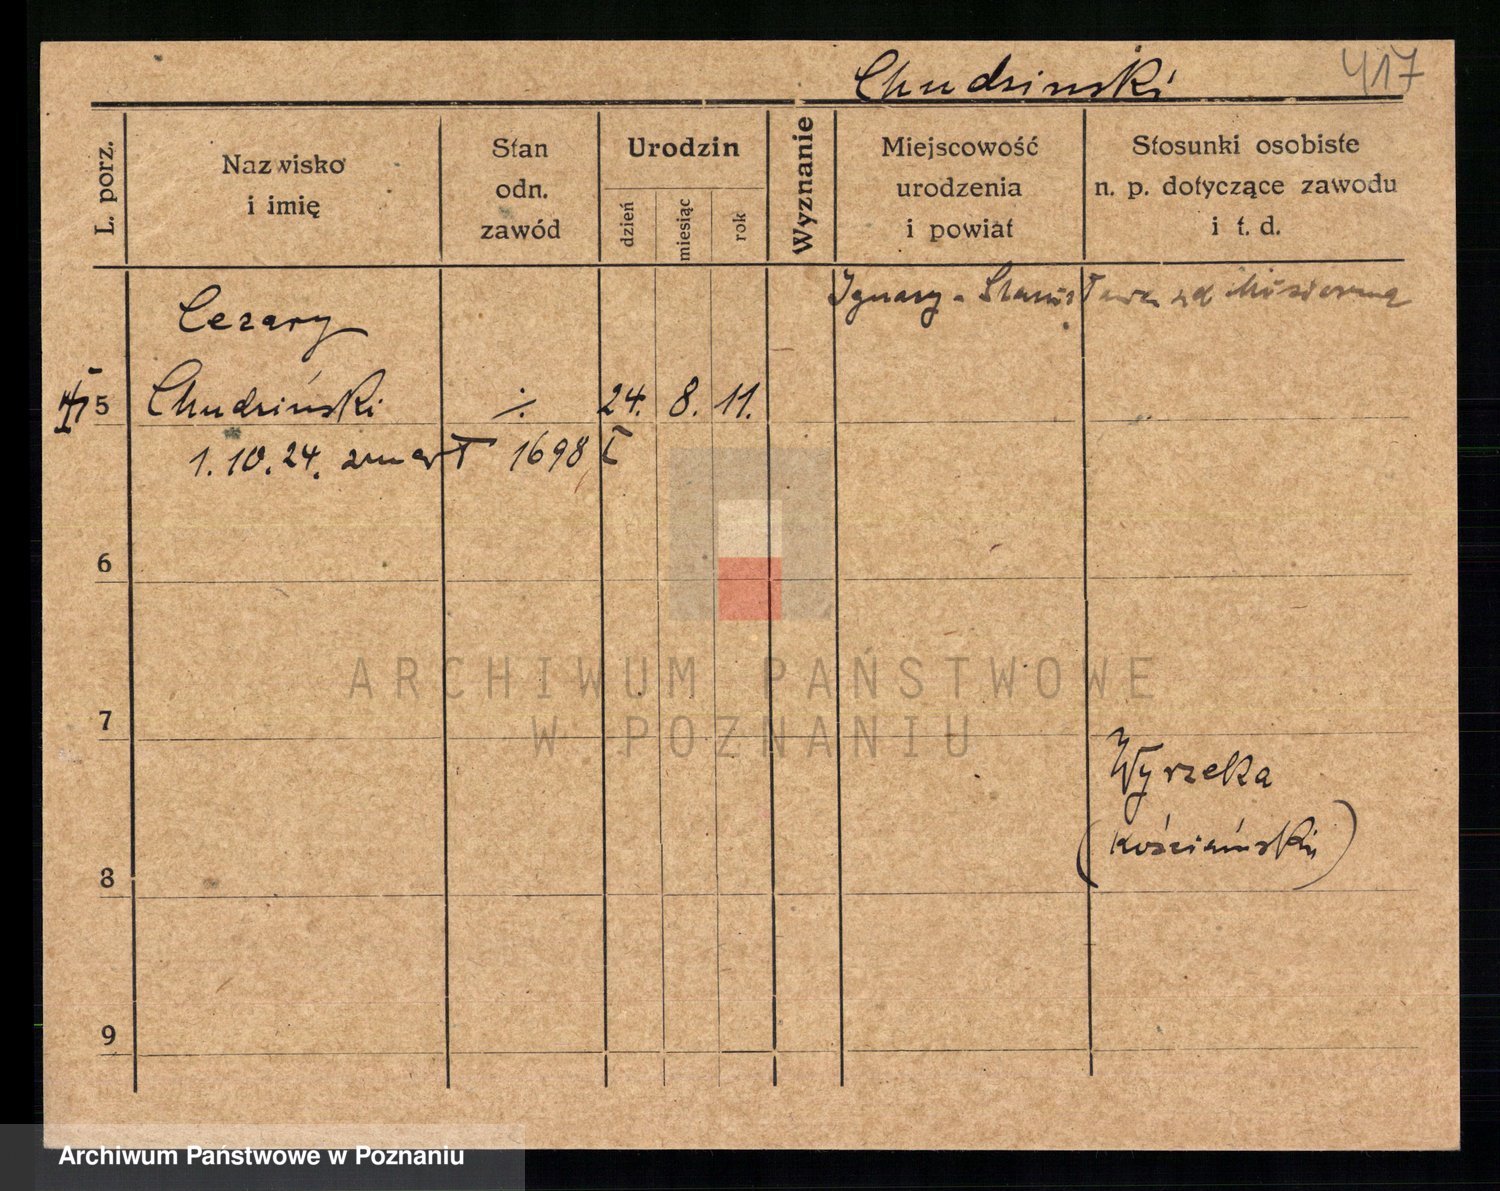 Chudzinski 417
L. porz.
Nazwisko
i imię
Stan
odn.
zawód
Urodzin
dzień
miesiąc
rok
Wyznanie
Miejscowość
urodzenia
i powiat
Stosunki osobiste
n. p. dotyczące zawodu
i t. d.
Ignacy - Stanisława zd
Cezary
5 Chudziński ·/. 24. 8. 11.
1.10.24. zmarł 1698
6
ARCHIWUM PAŃSTWOWE
W POZNANIU
7
Wyrzeka
(kościański)
8
9
Archiwum Państwowe w Poznaniu